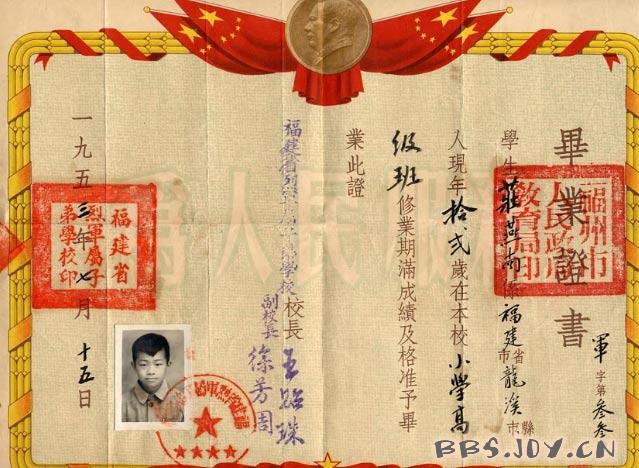 畢業證書
軍字第叁叁
學生莊燕南係福建省龍溪縣
市 市
人現年拾弍歲在本校小學高
级班修业期滿成績及格准予畢
業此證
福建省烈軍屬子弟學校校長 王 珠
副校長 徐芳周
一九五三年七月十五日
福州市人民政府教育局印
福建省烈軍屬子弟學校印
為人民服
BBS.JOY.CN